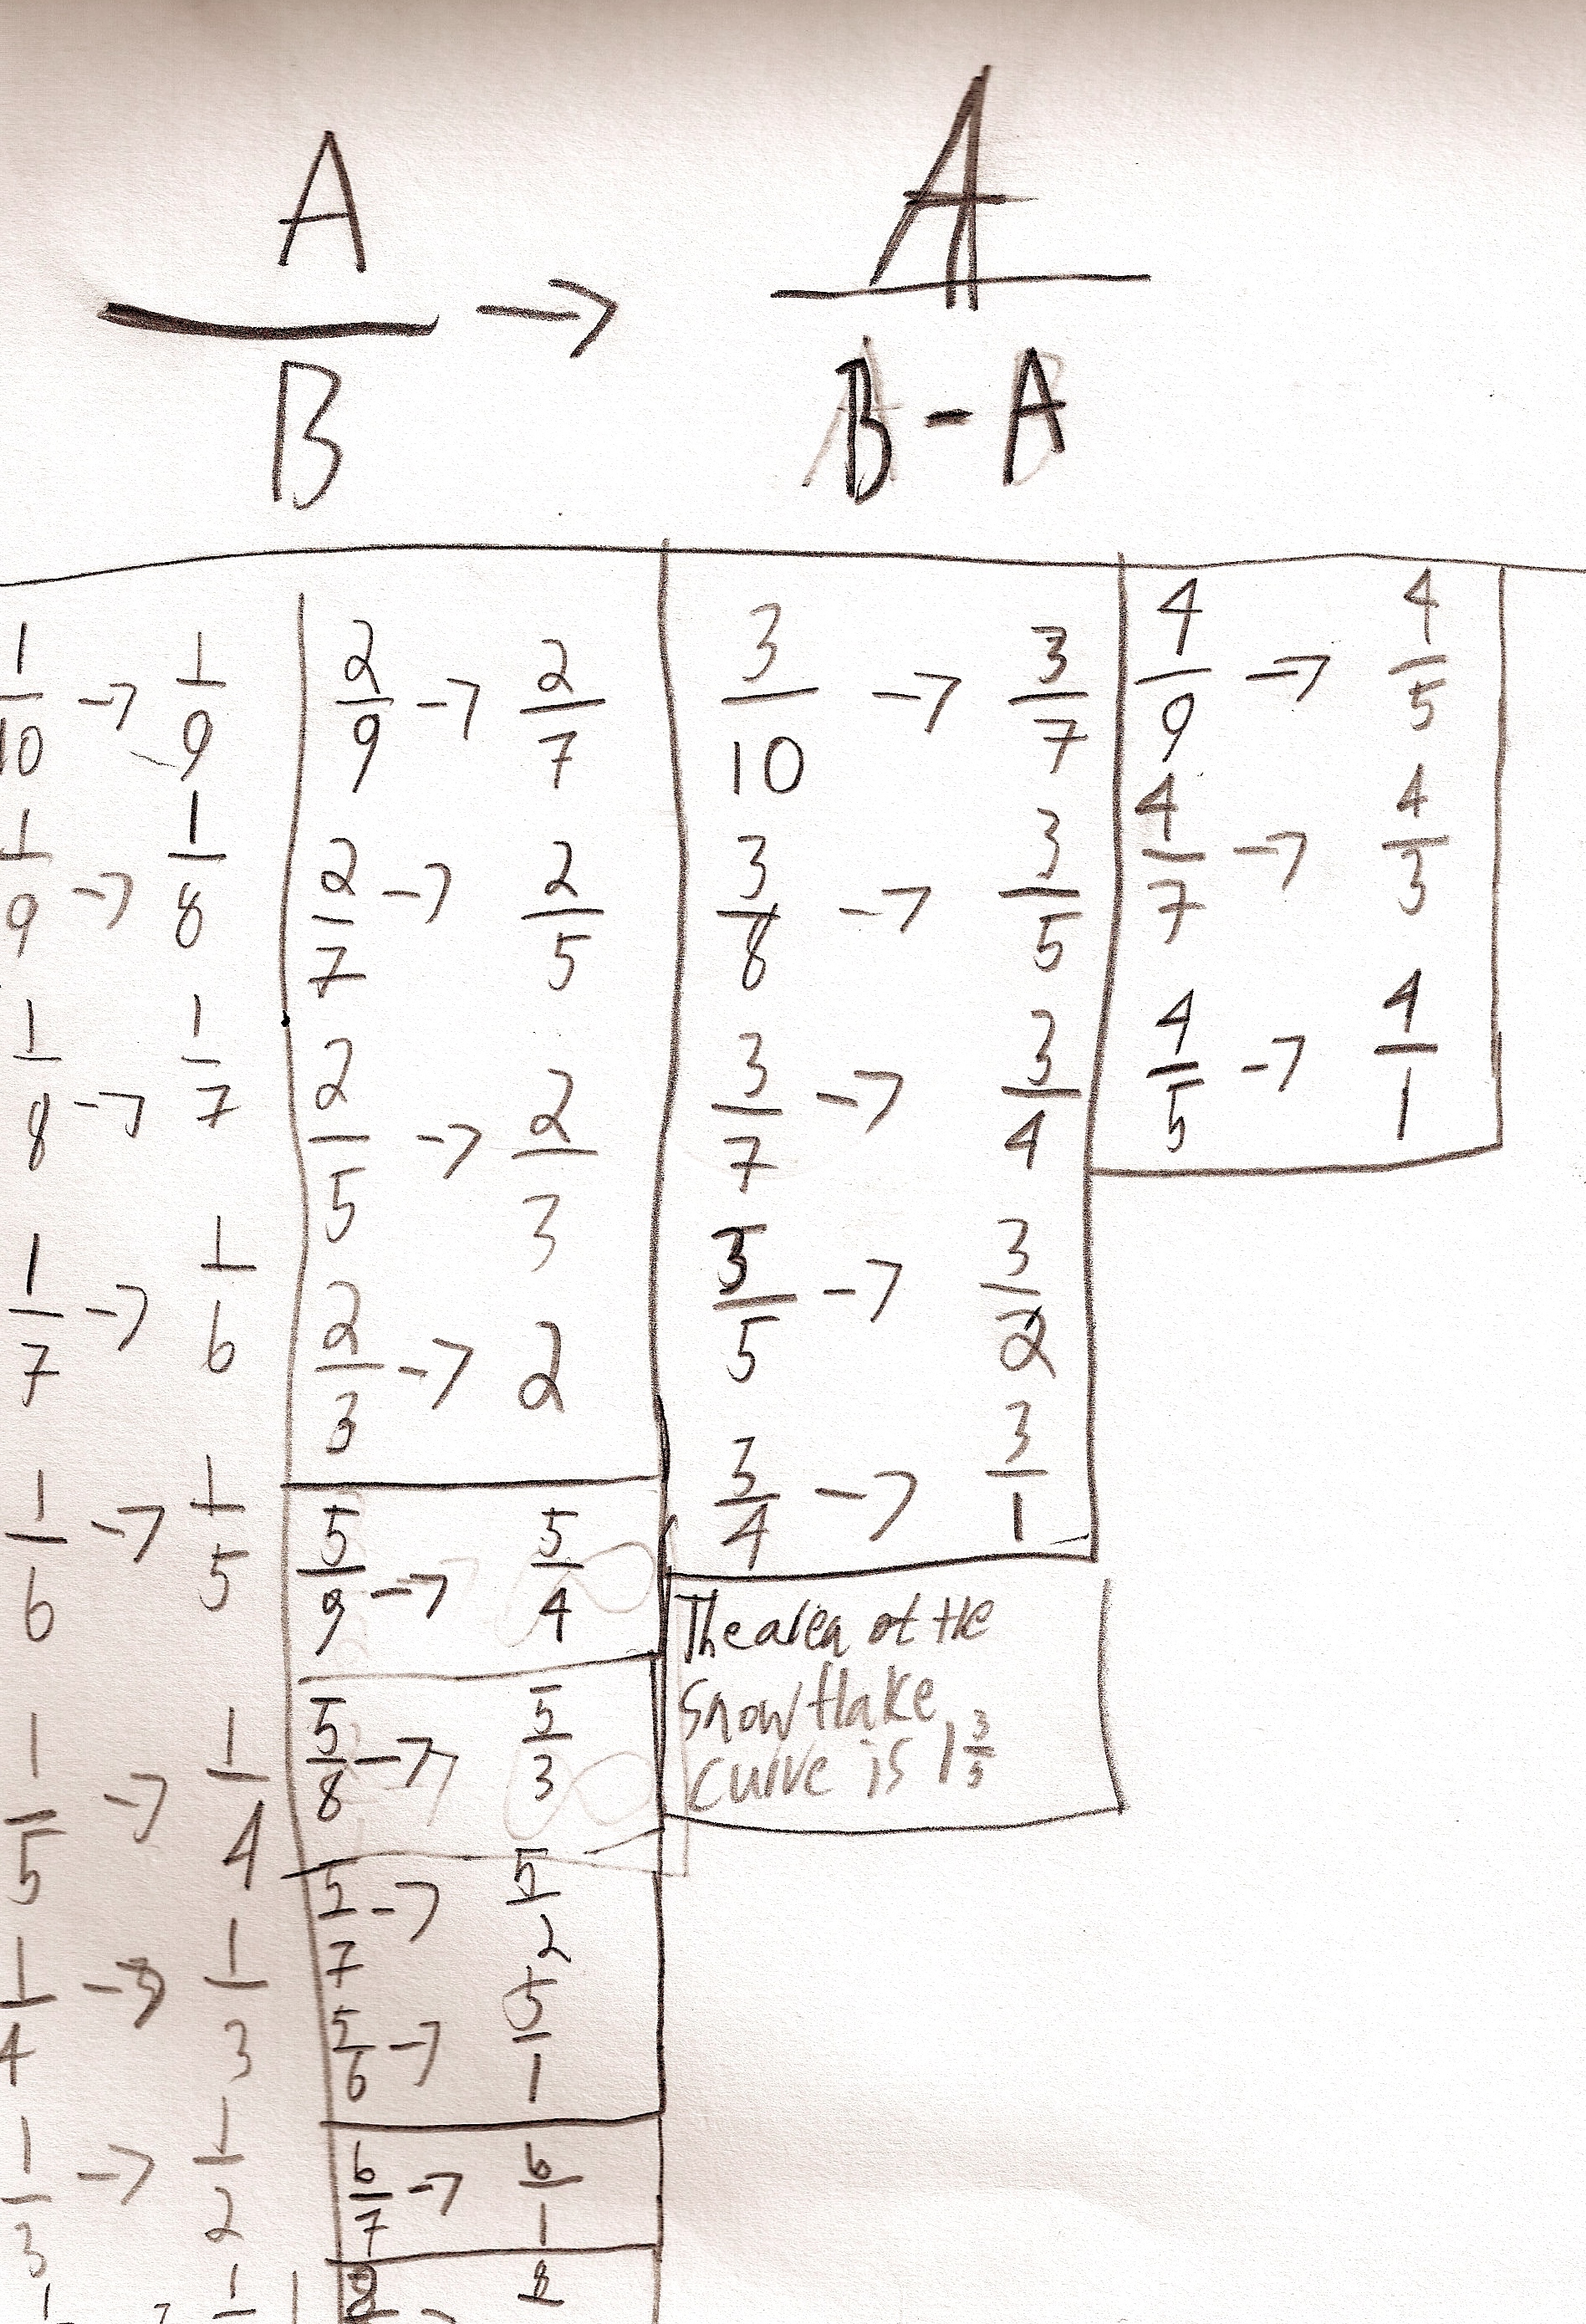 A/B -> A/B-A
1/10 -> 1/9
1/9 -> 1/8
1/8 -> 1/7
1/7 -> 1/6
1/6 -> 1/5
1/5 -> 1/4
1/4 -> 1/3
1/3 -> 1/2
2/9 -> 2/7
2/7 -> 2/5
2/5 -> 2/3
2/3 -> 2
5/9 -> 5/4
5/8 -> 5/3
5/7 -> 5/2
5/6 -> 5/1
6/7 -> 6/1
3/10 -> 3/7
3/8 -> 3/5
3/7 -> 3/4
3/5 -> 3/2
3/4 -> 3/1
The area of the
snowflake
curve is 1 3/5
4/9 -> 4/5
4/7 -> 4/3
4/5 -> 4/1